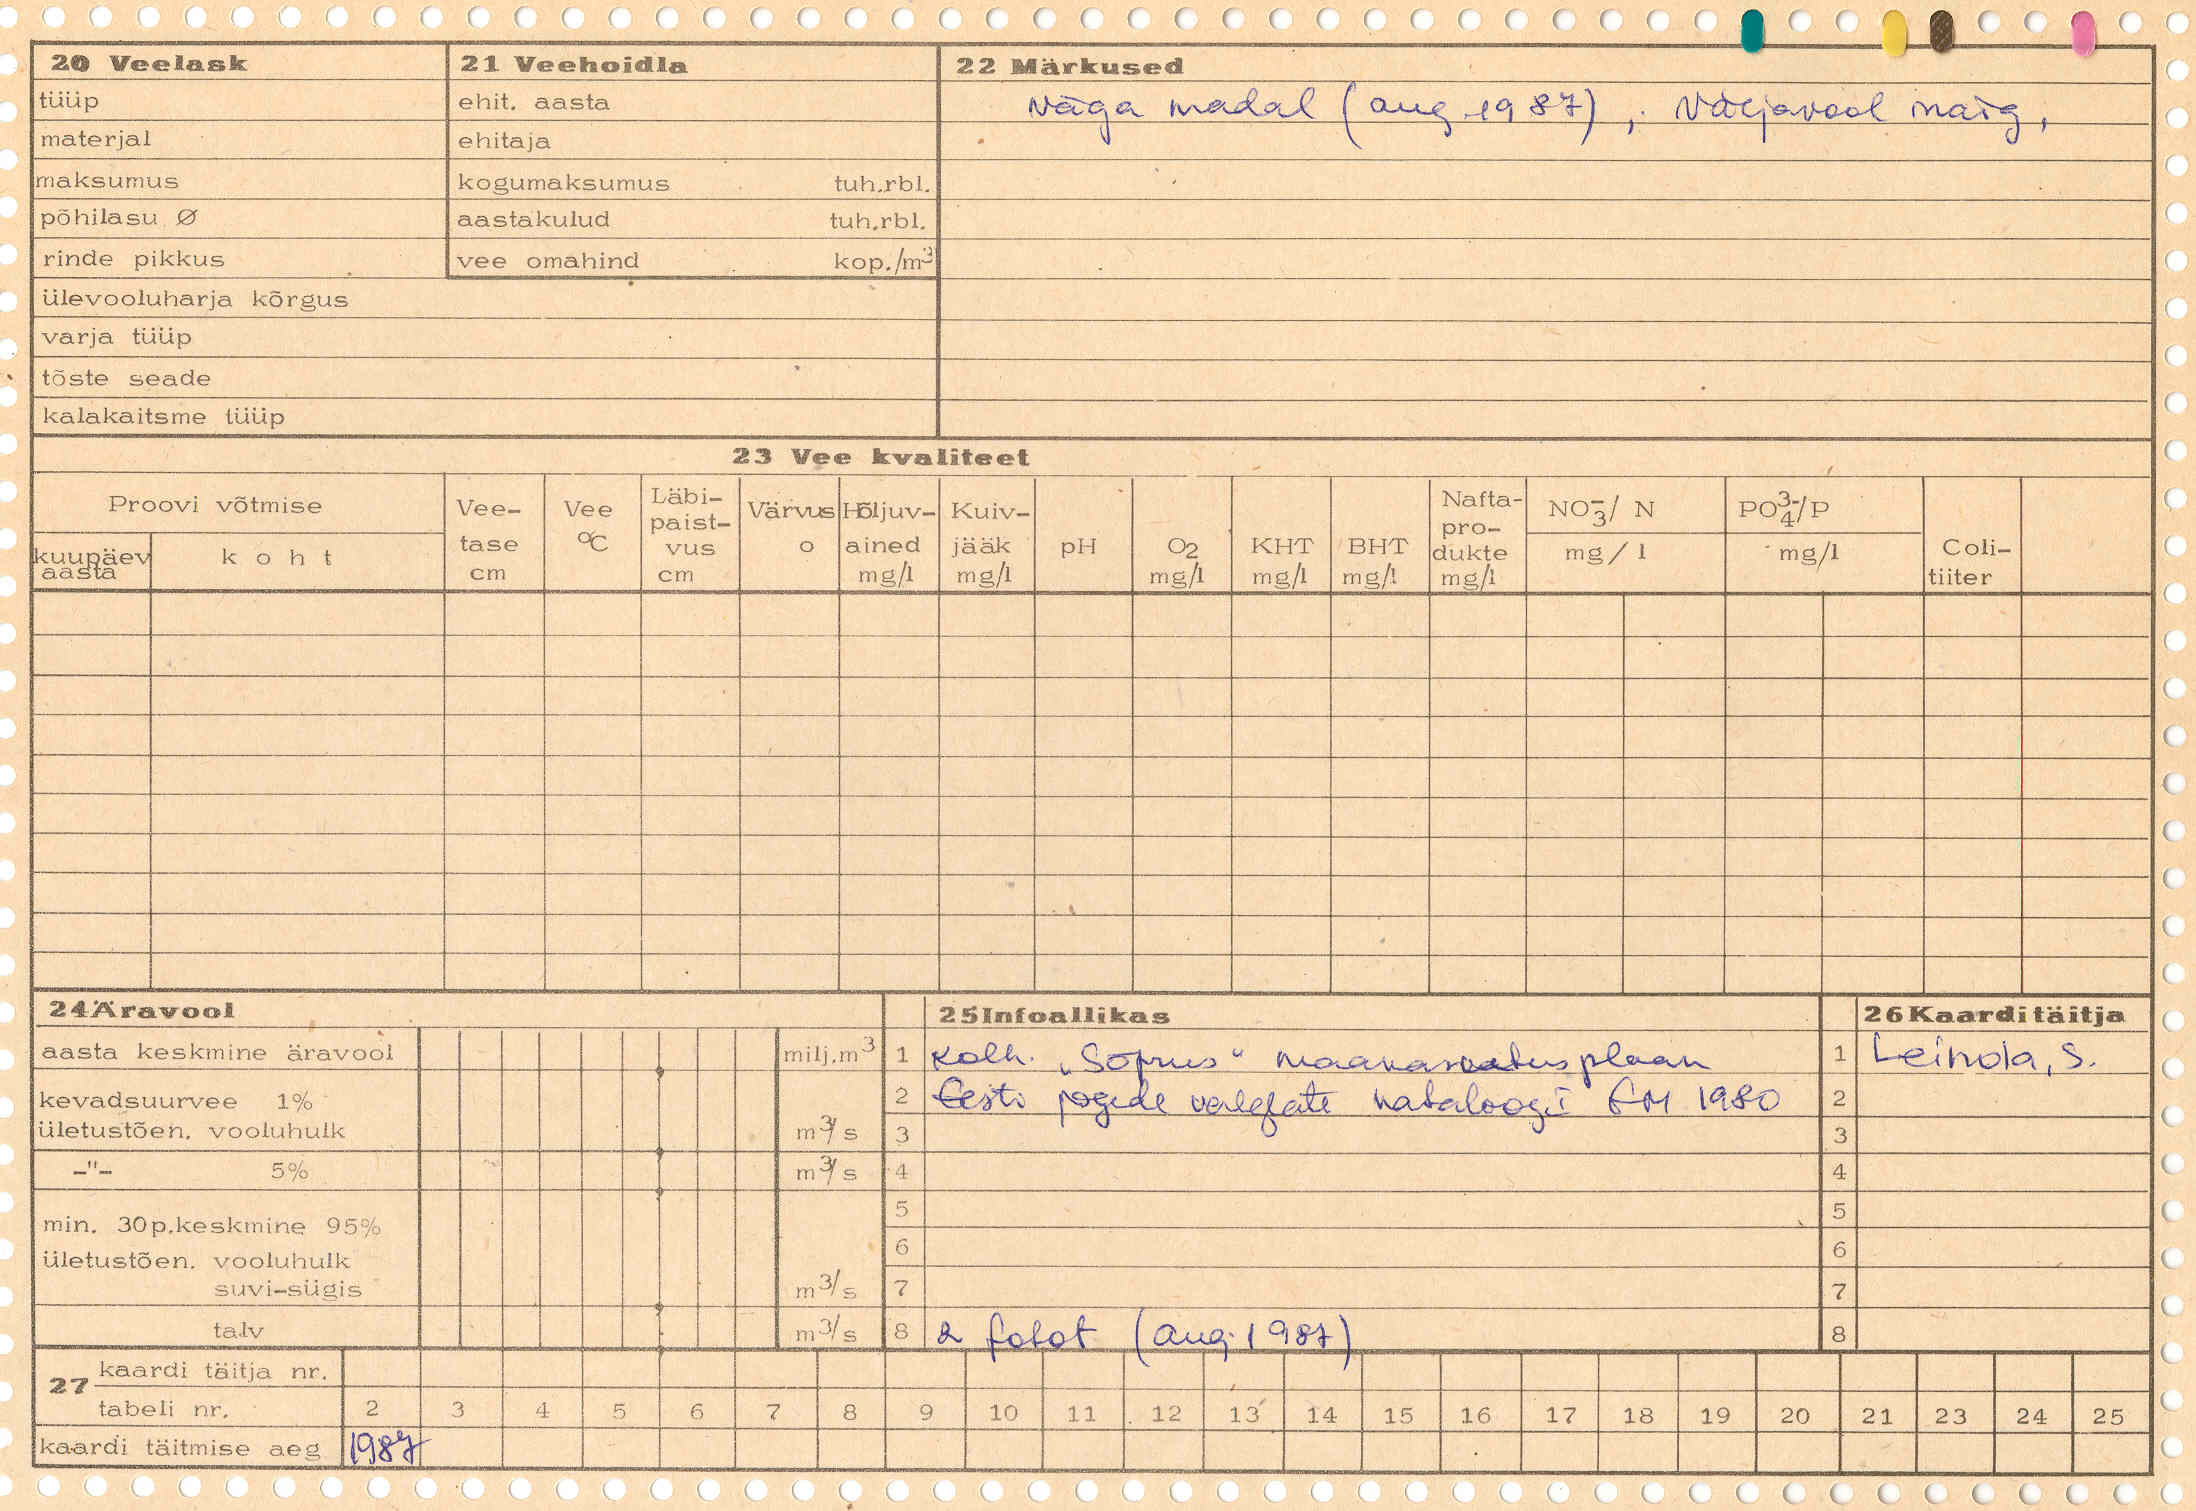 20 Veelask
tüüp
materjal
maksumus
põhilasu Ø
rinde pikkus
ülevooluharja kõrgus
varja tüüp
tõste seade
kalakaitsme tüüp
21 Veehoidla
ehit. aasta
ehitaja
kogumaksumus tuh.rbl.
aastakulud tuh.rbl.
vee omahind kop./m³
22 Märkused
Väga madal (aug. 1987), Väljavool märg,
23 Vee kvaliteet
Proovi võtmise
kuupäev aasta
koht
Vee-tase cm
Vee °C
Läbi-paist-vus cm
Värvus o
Hõljuv-ained mg/l
Kuiv-jääk mg/l
pH
O2 mg/l
KHT mg/l
BHT mg/l
Nafta-pro-dukte mg/l
NO3-/ N
mg/l
PO4 3-/P
mg/l
Coli-tiiter
24 Äravool
aasta keskmine äravool milj.m³
kevadsuurvee 1%
ületustõen. vooluhulk m³/s
-"- 5% m³/s
min. 30p.keskmine 95%
ületustõen. vooluhulk
suvi-sügis m³/s
talv m³/s
25 Infoallikas
1 Kolh. „Sõprus“ maakasutusplaan
2 Eesti jõgede valglate kataloog I EM 1980
3
4
5
6
7
8 2 fotot (aug. 1987)
26 Kaarditäitja
1 Leinola, S.
2
3
4
5
6
7
8
27 kaardi täitja nr.
tabeli nr. 2 3 4 5 6 7 8 9 10 11 12 13 14 15 16 17 18 19 20 21 23 24 25
kaardi täitmise aeg 1987